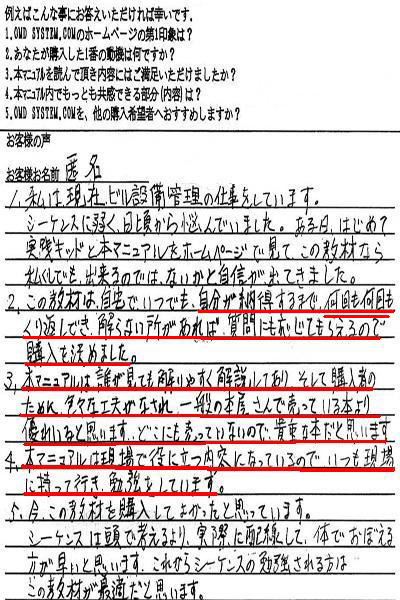 例えばこんな事にお答えいただければ幸いです。
1.OMD SYSTEM.COMのホームページの第1印象は？
2.あなたが購入した1番の動機は何ですか？
3.本マニュアルを読んで頂き内容にはご満足いただけましたか？
4.本マニュアル内でもっとも共感できる部分(内容)は？
5.OMD SYSTEM.COMを、他の購入希望者へおすすめしますか？
お客様の声
お客様お名前 匿名
1、私は現在、ビル設備管理の仕事をしています。
シーケンスに弱く、日頃から悩んでいました。ある日、はじめて
実践キッドと本マニュアルをホームページで見て、この教材なら
私しでも、出来るのでは、ないかと自信が出てきました。
2、この教材は、自宅で、いつでも、自分が納得するまで、何回も何回も
くり返しでき、解らない所があれば、質問にも応じてもらえるので
購入を決めました。
3、本マニュアルは、誰が見ても解りやすく解説してあり、そして購入者の
ために、色々な工夫がなされ、一般の本屋さんで売っている本より
優れいると思います。どこにも売っていないので、貴重な本だと思います
4、本マニュアルは現場で役に立つ内容になっているので、いつも現場
に持って行き、勉強をしています。
5、今、この教材を購入してよかったと思っています。
シーケンスは頭で考えるより、実際に配線して、体でおぼえる
方が早いと思います、これからシーケンスの勉強される方は
この教材が最適だと思います。